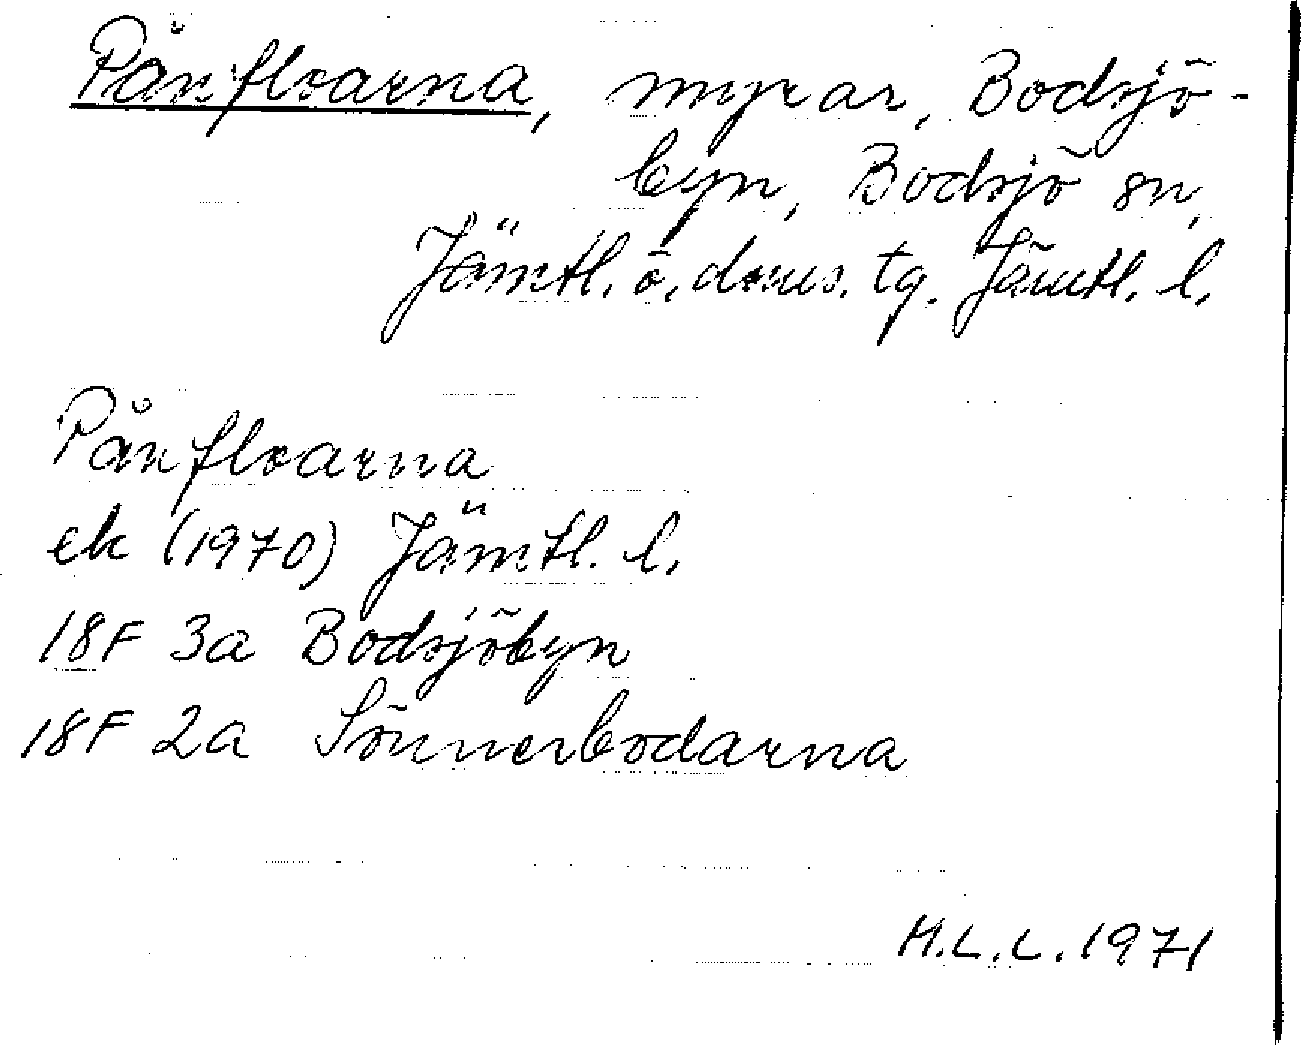 Pånfloarna, myrar, Bodsjö-
byn, Bodsjö sn,
Jämtl. ö. doms. tg. Jämtl. l.
Pånfloarna
ek (1970) Jämtl. l.
18F 3a Bodsjöbyn
18F 2a Sönnerbodarna
M.L.L. 1971